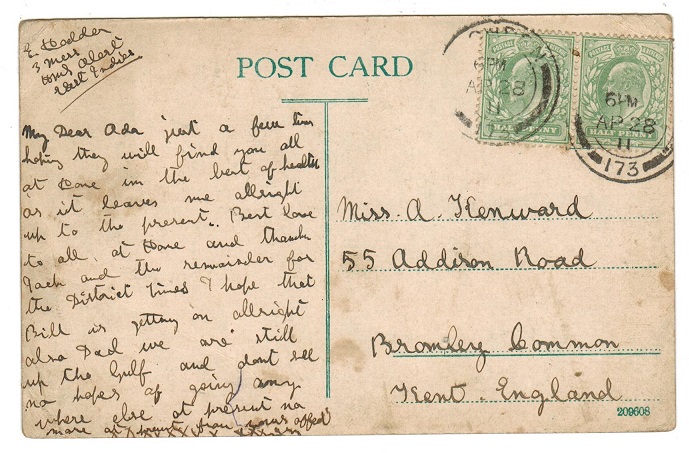 E Hodder
3 Mess
HMS Alert
East Indies
POST CARD
My Dear Ada just a few lines
hoping they will find you all
at Home in the best of health
as it leaves me allright
up to the present.. Best love
to all at Home and thank
Jack and the remainder for
the District Times I hope that
Bill is getting on allright
also Dad we are still
up the Gulf and dont see
no hopes of going any
where else at present no
more at present from yours affect
XXXXXXX
6PM
AP 28
11
HALF PENNY
6PM
AP 28
11
173
HALF PENNY
Miss. A. Kenward
55 Addison Road
Bromley Common
Kent. England
209608